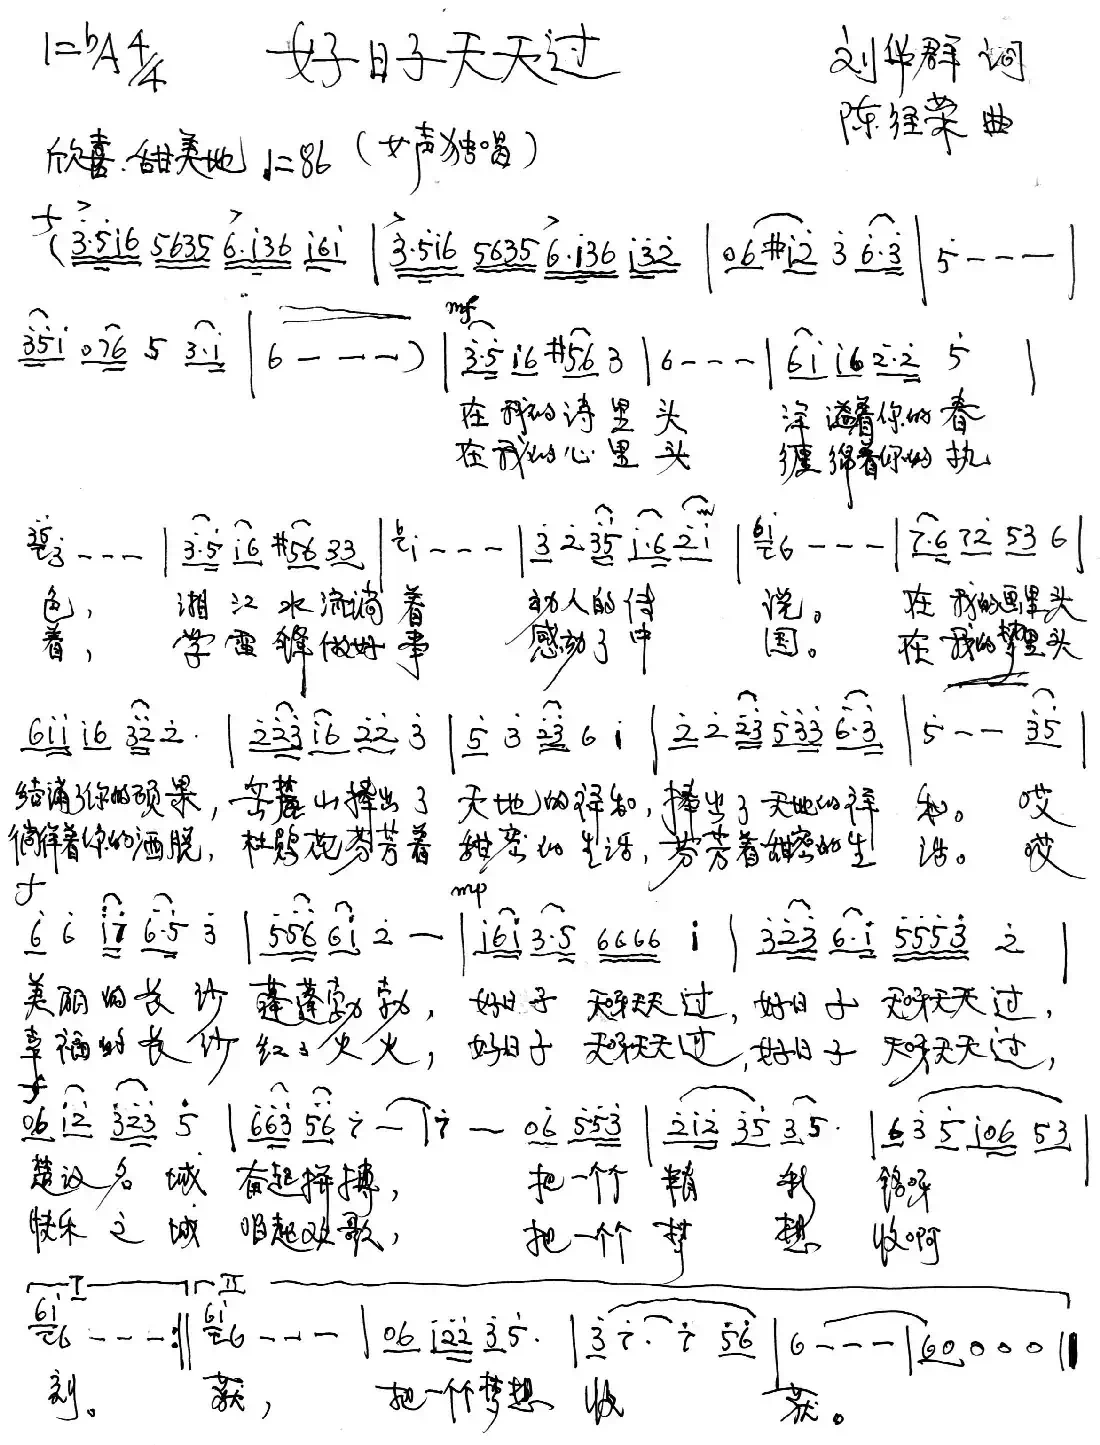 1=bA 4/4 好日子天天过 刘华群 词
陈经荣 曲
欣喜.甜美地 ♩=86 (女声独唱)
f
(3·5i6 5635 6·i36 i6i | 3·5i6 5635 6·i36 i32 | 06 #i2 3 6·3 | 5 - - - |
mf
35i 076 5 3·i | 6 - - - ) | 3·5 i6 #56 3 | 6 - - - | 6i i6 2·2 5 |
在我的诗里头 洋溢着你的春
在我的心里头 缠绵着你的执
35 3 - - - | 3·5 i6 #56 33 | 6 i - - - | 3 2 35 i·6 2i | 6i 6 - - - | 7·6 72 53 6 |
色, 湘江水流淌着 动人的传说。 在我的画里头
着, 学雷锋做好事 感动了中国。 在我的梦里头
6ii i6 32 2· | 223 i6 22 3 | 5 3 23 6 i | 2 2 23 533 6·3 | 5 - - 35 |
结满了你的硕果, 岳麓山捧出了天地的祥和, 捧出了天地的祥和。 哎
徜徉着你的洒脱, 杜鹃花芬芳着甜蜜的生活, 芬芳着甜蜜的生活。 哎
f mp
6 6 i7 6·5 3 | 556 6i 2 - | i6i 3·5 6666 i | 323 6·i 5553 2 |
美丽的长沙蓬蓬勃勃, 好日子 天呀天天过, 好日子 天呀天天过,
幸福的长沙红红火火, 好日子 天呀天天过, 好日子 天呀天天过,
f
06 i2 323 5 | 663 56 7 - | 7 - 06 553 | 2i2 35 35· | 63 5 i06 53 |
楚汉名城 奋起拼搏, 把一个个精彩铭呀
快乐之城 唱起欢歌, 把一个个梦想收啊
I II
6i 6 - - - :|| 6i 6 - - - | 06 i22 35· | 3 7· 7 56 | 6 - - - | 60 0 0 0 ||
刻。 获, 把一个个梦想收 获。